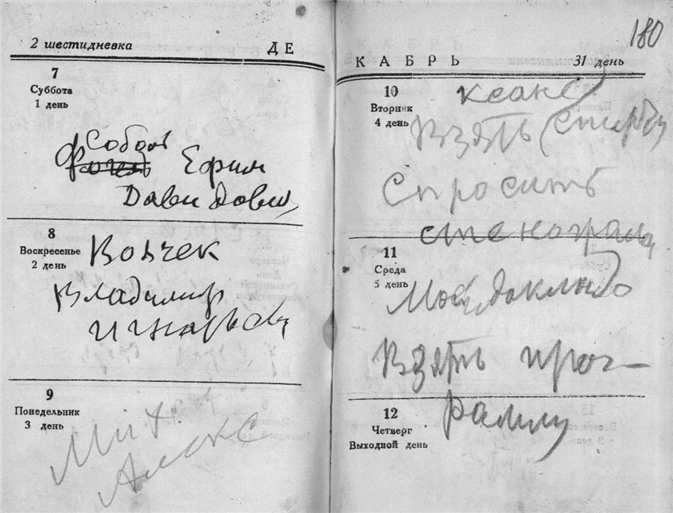 2 шестидневка ДЕ
7
Суббота
1 день
Соболь
Ефим
Давидович
8
Воскресенье
2 день
Вовчек
Владимир
Игнатьевич
9
Понедельник
3 день
Мих
Алекс
180
КАБРЬ 31 день
10
Вторник
4 день
Взять
Спросить
стенограмму
11
Среда
5 день
Мой доклад
Взять прог-
рамму
12
Четверг
Выходной день